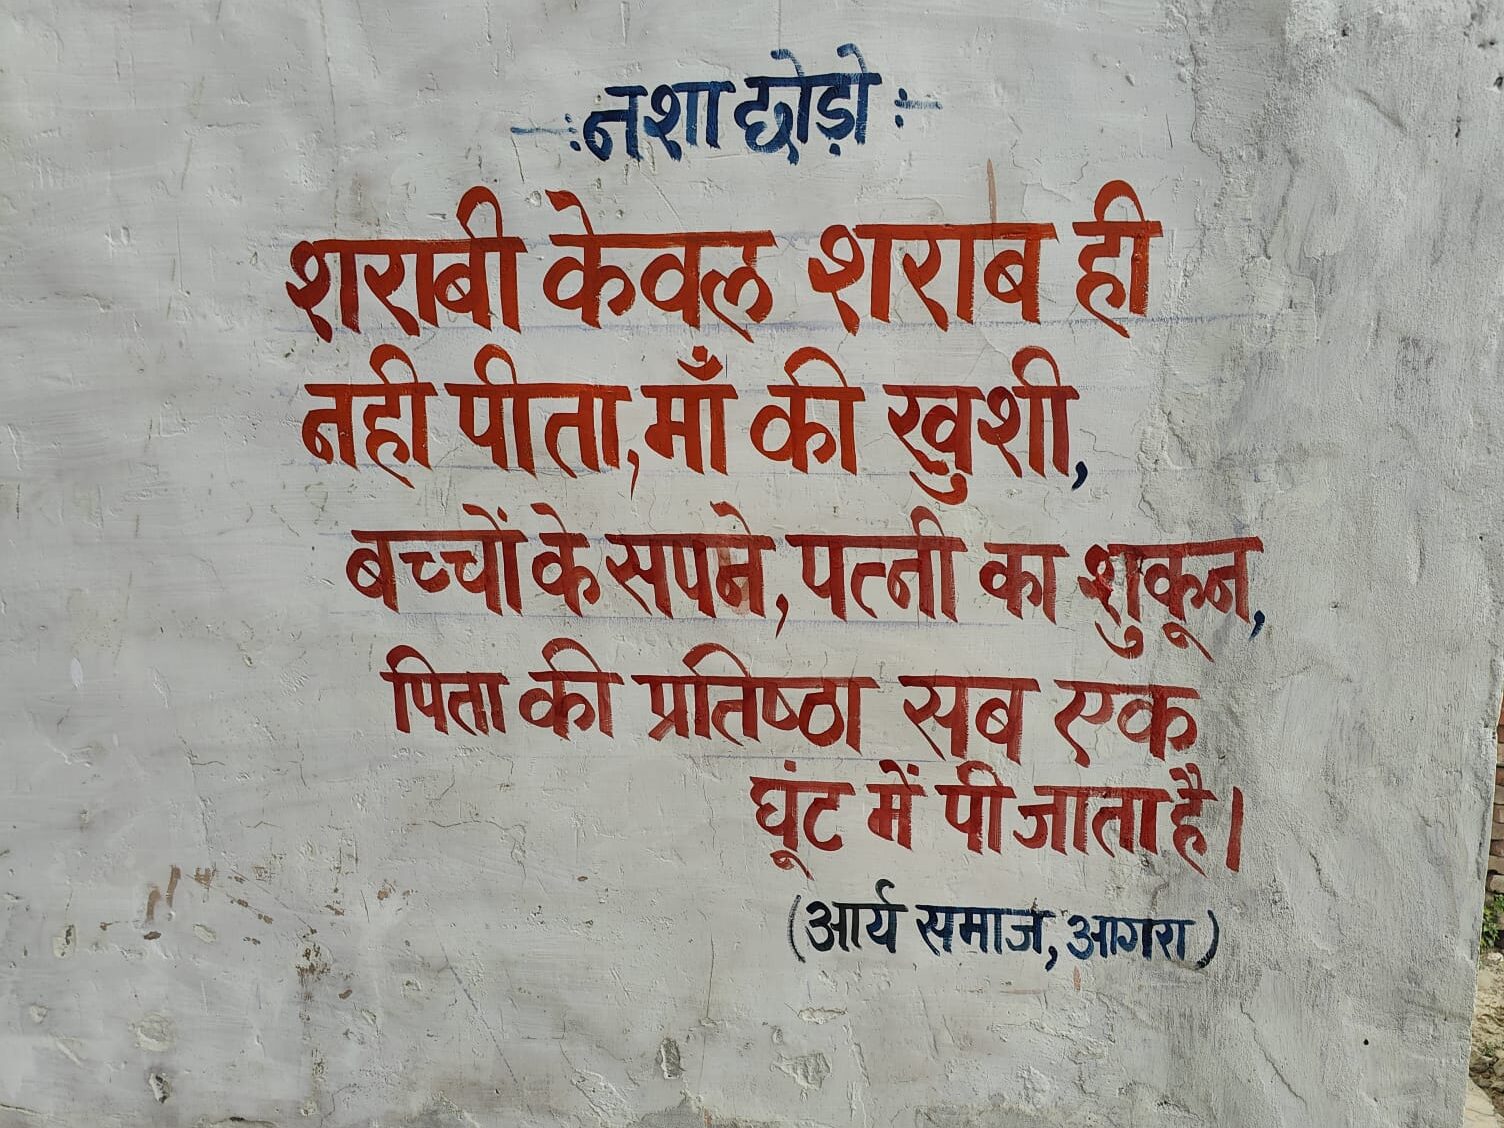 -:नशा छोड़ो:-
शराबी केवल शराब ही
नही पीता, माँ की खुशी,
बच्चों के सपने, पत्नी का शुकून,
पिता की प्रतिष्ठा सब एक
घूंट में पी जाता है।
(आर्य समाज, आगरा)